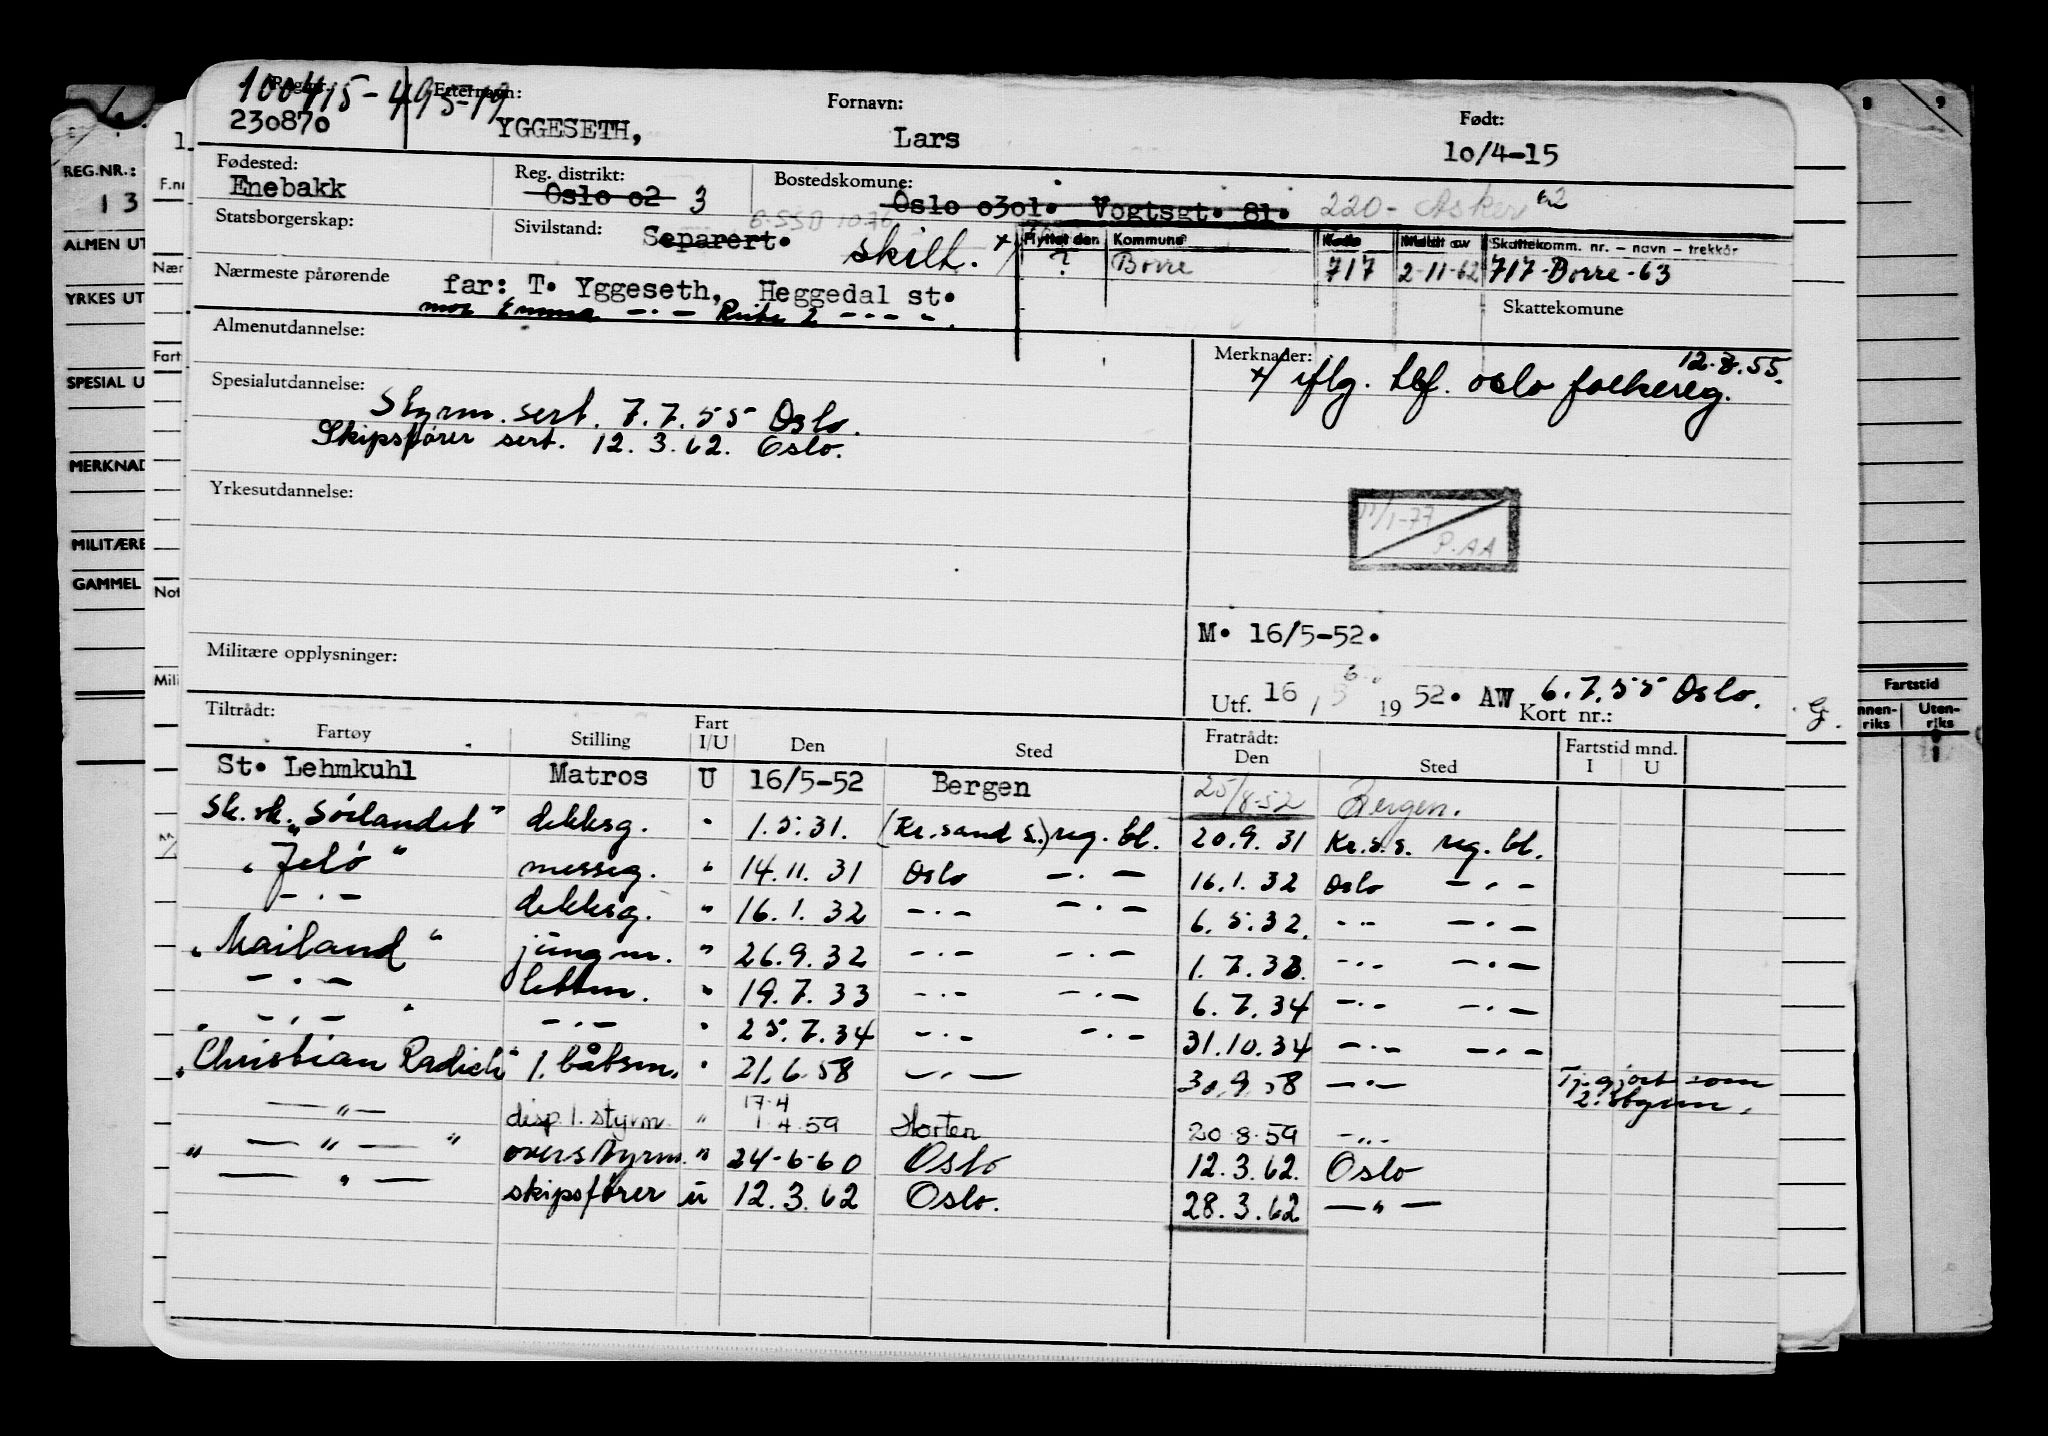 100415-49579
Reg.nr.: Etternavn: Fornavn: Født:
230870 YGGESETH, Lars 10/4-15
Fødested: Reg. distrikt: Bostedskomune:
Enebakk Oslo 02 3 Oslo 0301. Vogtsgt. 81. 220- Asker
Statsborgerskap: Sivilstand: Separert. skilt. x/
Flyttet den Kommune Kode Meldt av Skattekomm. nr. – navn – trekkår
? Borre 717 2-11-62 717-Borre-63
Nærmeste pårørende far: T. Yggeseth, Heggedal st.
mor Emma — · — — · — · — „ . Skattekomune
Almenutdannelse: Merknader: 12.8.55.
x/ iflg. tlf. oslo folkereg.
Spesialutdannelse:
Styrm. sert. 7.7.55 Oslo.
Skipsfører sert. 12.3.62. Oslo.
Yrkesutdannelse:
11/1-77
P.AA
M. 16/5-52.
Militære opplysninger:
Utf. 16 / 5 1952. AW 6.7.55 Oslo.
Kort nr.:
Tiltrådt: Fratrådt: Fartstid mnd.
Fartøy Stilling Fart I/U Den Sted Den Sted I U
St. Lehmkuhl Matros U 16/5-52 Bergen 25/8-52 Bergen.
Sk.sk. „Sörlandet" dekksg. " 1.5.31. (Kr.sand S.) reg. bl. 20.9.31 Kr.s.s. reg. bl.
„Jelö" messeg. " 14.11.31 Oslo — · — 16.1.32 Oslo — · —
— · — dekksg. " 16.1.32 — · — — · — 6.5.32. — · — — · —
„Mailand" jungm. " 26.9.32 — · — — · — 1.7.33. — · — — · —
— · — lettm. " 19.7.33 — · — — · — 6.7.34 — · — — · —
— · — — · — " 25.7.34 — · — — · — 31.10.34 — · — — · —
„Christian Radich" 1. båtsm. " 21.6.58 — · — 30.9.58 — · — Tj. gjort som
2. styrm.
17.4
— " — disp. 1. styrm. " 1.4.59 Horten 20.8.59 — " —
" — " — " overstyrm. " 24-6-60 Oslo 12.3.62. Oslo
— " — skipsfører u 12.3.62 Oslo. 28.3.62 — " —
REG.NR.:
1 3
ALMEN UT
YRKES UT
SPESIAL U
MERKNAD
MILITÆRE
GAMMEL
F.nr
Nær
Fart
Not
Mili
8 9
Fartstid
nnen-riks Uten-riks